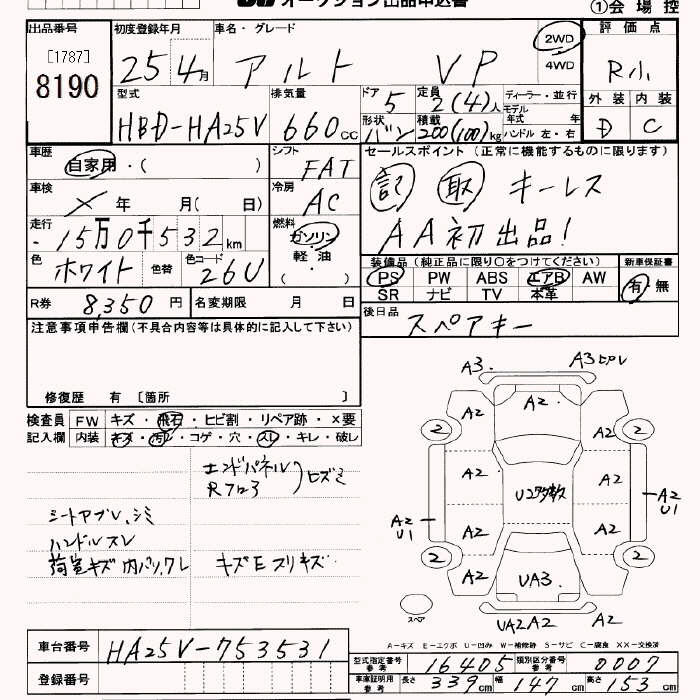 オークション出品申込書
①会場控
出品番号
[1787]
8190
初度登録年月
25年4月
車名・グレード
アルト VP
2WD
4WD
評価点
R小
外装 内装
D C
型式
HBD-HA25V
排気量
660cc
ドア
5
形状
バン
定員
2(4)人
積載
200(100)kg
ディーラー・並行
モデル
年式 年
ハンドル 左・右
車歴
自家用・( )
シフト
FAT
車検
× 年 月( 日)
冷房
AC
走行
15万0千532km
燃料
ガソリン
軽・油
( ・ )
色
ホワイト
色替
色コード
26U
R券 8,350円
名変期限 月 日
セールスポイント(正常に機能するものに限ります)
記 取 キーレス
AA初出品!
装備品(純正品に限り○をつけてください)
PS PW ABS エアB AW
SR ナビ TV 本革
新車保証書
有・無
後日品
スペアキー
注意事項申告欄(不具合内容等は具体的に記入して下さい)
修復歴 有 [箇所 ]
検査員
記入欄
FW キズ・飛石・ヒビ割・リペア跡・×要
内装 キズ・汚れ・コゲ・穴・スレ・キレ・破レ
エンドパネル
Rフロア
ヒズミ
シートヤブレ、シミ
ハンドルスレ
荷室キズ 内バリワレ
キズEスリキズ
A3
A3
A2
A2
A2
2
2
A2
A2
A2
A2
U1
A2
U1
A2
A2
2
2
A2
UA3
A2
スペア
UA2A2
A2
A-キズ E-エクボ U-凹み W-補修跡 S-サビ C-腐食 XX-交換済
車台番号
HA25V-753531
登録番号
型式指定番号
参考
16405
類別区分番号
参考
0007
車庫証明用
参考
長さ 339cm 幅 147cm 高さ 153cm